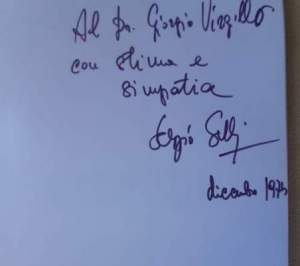 Al Dr. Giorgio Virgillo
con stima e
simpatia
Sergio
dicembre 1975